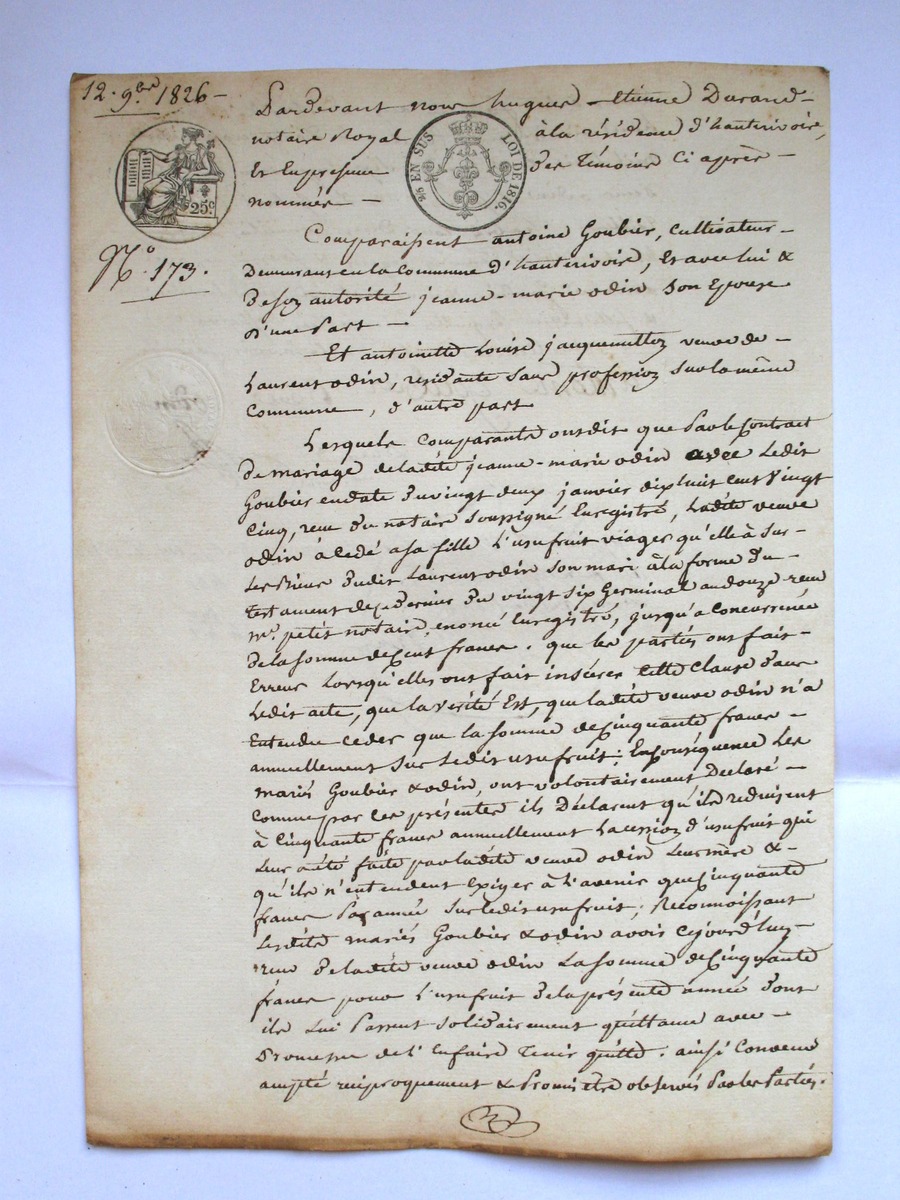 12. 9.bre 1826 –
Pardevant nous hugues – Etienne Durand –
notaire Royal à la résidence d'hauterivoire,
Et En presence des témoins Ci après –
nommés –
EN SUS LOI DE 1816.
25c
N.o 173.
Comparaissent antoine Goubier, Cultivateur –
Demeurant en la Commune d'hauterivoire, Et avec lui &
De son autorité jeanne-marie odin Son Epouse
D'une Part –
Et antoinette Louise jacquemetton veuve de –
Laurent odin, residante Sans profession Sur la même
Commune, d'autre part
Lesquels Comparants ont dit que Par le Contract
De mariage de ladite jeanne-marie odin avec Ledit
Goubier en date Du vingt deux janvier dix huit cent Vingt
Cinq, reçu Du notaire Soussigné Enregistré, Ladite veuve
odin à Cedé a sa fille L'usufruit viager qu'elle à Sur –
Les Biens Dudit Laurent odin Son mari à la forme Du –
testament de Ce dernier Du vingt Six Germinal an douze reçu
m.e petit notaire, enoncé Enregistré, jusqu'a Concurrence
De la Somme de Cent francs. que les parties ont fait –
Erreur Lorsqu'elles ont fait insérer Cette Clause Dans
Ledit acte, que La vérité Est, que ladite veuve odin n'a
Entendu Ceder que la Somme de Cinquante francs –
annuellement Sur Ledit usufruit; En Conséquence Les
mariés Goubier & odin, ont volontairement Declaré –
Comme par Ces présentes ils Déclarent qu'ils reduisent
à Cinquante francs annuellement La Cession d'usufruit qui
Leur a été faite par ladite veuve odin Leur mère & –
qu'ils n'entendent Exiger à L'avenir que Cinquante
francs Par année Sur Ledit usufruit; Reconnoissant
Lesdits mariés Goubier & odin avoir Cejourd'huy –
reçu De ladite veuve odin La Somme de Cinquante
francs pour L'usufruit De la présente année Dont
ils Lui Passent Solidairement quittance avec –
Promesse de L'En faire Tenir quitte. ainsi Convenu
accepté réciproquement & Promis être observés Par les Parties.